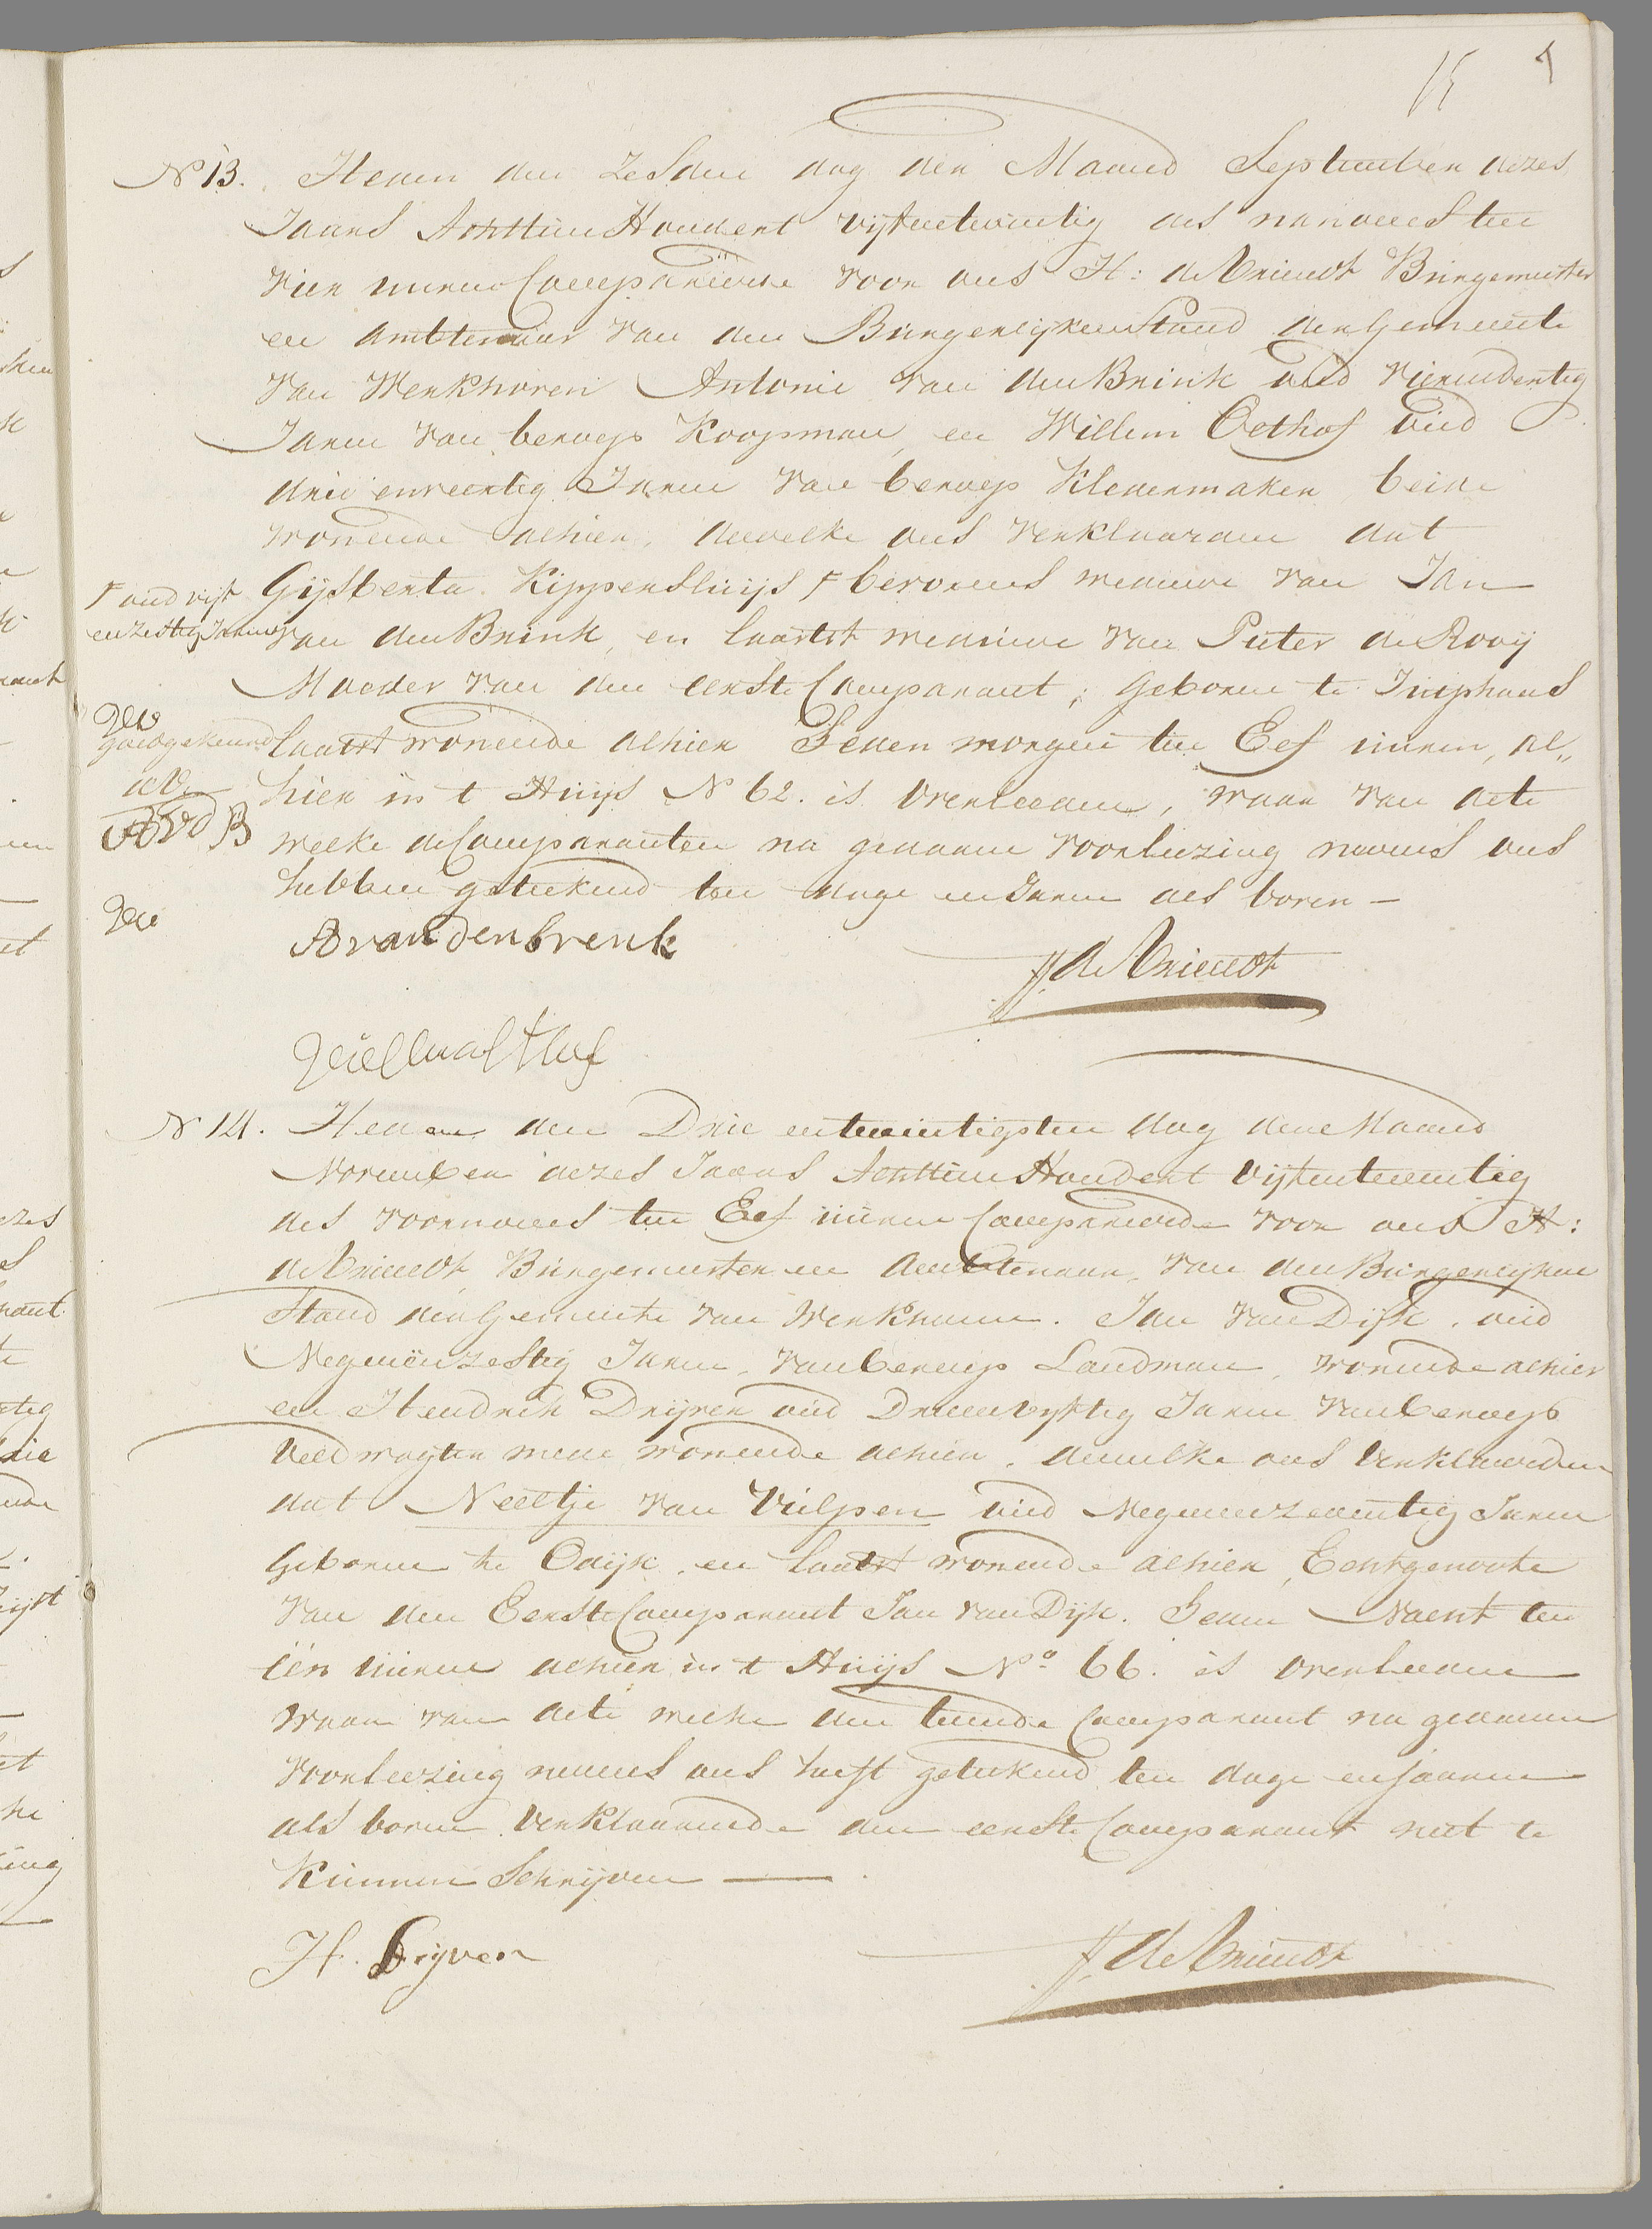 15 9
N 13. Heden den zesden dag der Maand September dezes
Jaars Achttien Hondert vijfentwintig des namiddags ten
vier uuren Compareerde voor ons H: de Vriendt Burgemeester
en Ambtenaar van den Burgerlijken Stand der Gemeente
van Werkhoven Antonie van den Brink oud vierendertig
Jaren van beroep Koopman, en Willem Oethof oud
drie enveertig Jaren van beroep Kledermaker beide
wonende alhier, dewelke ons verklaarden dat
Gijsberta Kippersluijs F bevorens weduwe van Jan
F oud vijf
enzestig Jaren
van den Brink, en laatst weduwe van Pieter de Rooij
Moeder van den eerste Comparant, geboren te Jutphaas
goedgekeurd
laatst wonende alhier Heden morgen ten Elf uuren, al„
hier in t Huijs N 62. is overleeden, waar van acte
AVDB
welke de Comparanten na gedaane voorleezing nevens ons
hebben getekend ten dage en Jaren als boven —
A van den brenk
H. de Vriendt
N 14. Heden den Drie entwintigsten dag der Maand
November dezes Jaars Achttien Hondert vijfentwentig
des voormiddags ten Elf uuren Compareerde voor ons H:
de Vriendt Burgemeester en Ambtenaar van den Burgerlijken
Stand der Gemeente van Werkhoven. Jan van Dijk, oud
Negenenzestig Jaren, van beroep Landman, wonende alhier
en Hendrik Drijver oud Drieenvijftig Jaren van beroep
Veldwagter mede wonende alhier, dewelke ons verklaarden
dat Neeltje van Vulpen oud Negenenzeventig Jaren
Geboren te Odijk, en laatst wonende alhier, Echtgenoote
van den Eerste Comparant Jan van Dijk. Heden Nacht ten
één uuren alhier in t Huijs No 66. is overleeden
waar van acte welke den tweede Comparant na gedaane
voorleezing nevens ons heeft getekend ten dage en jaaren
als boven verklarende den eerste Comparant niet te
Kunnen Schrijven —
H. Drijver
H. de Vriendt